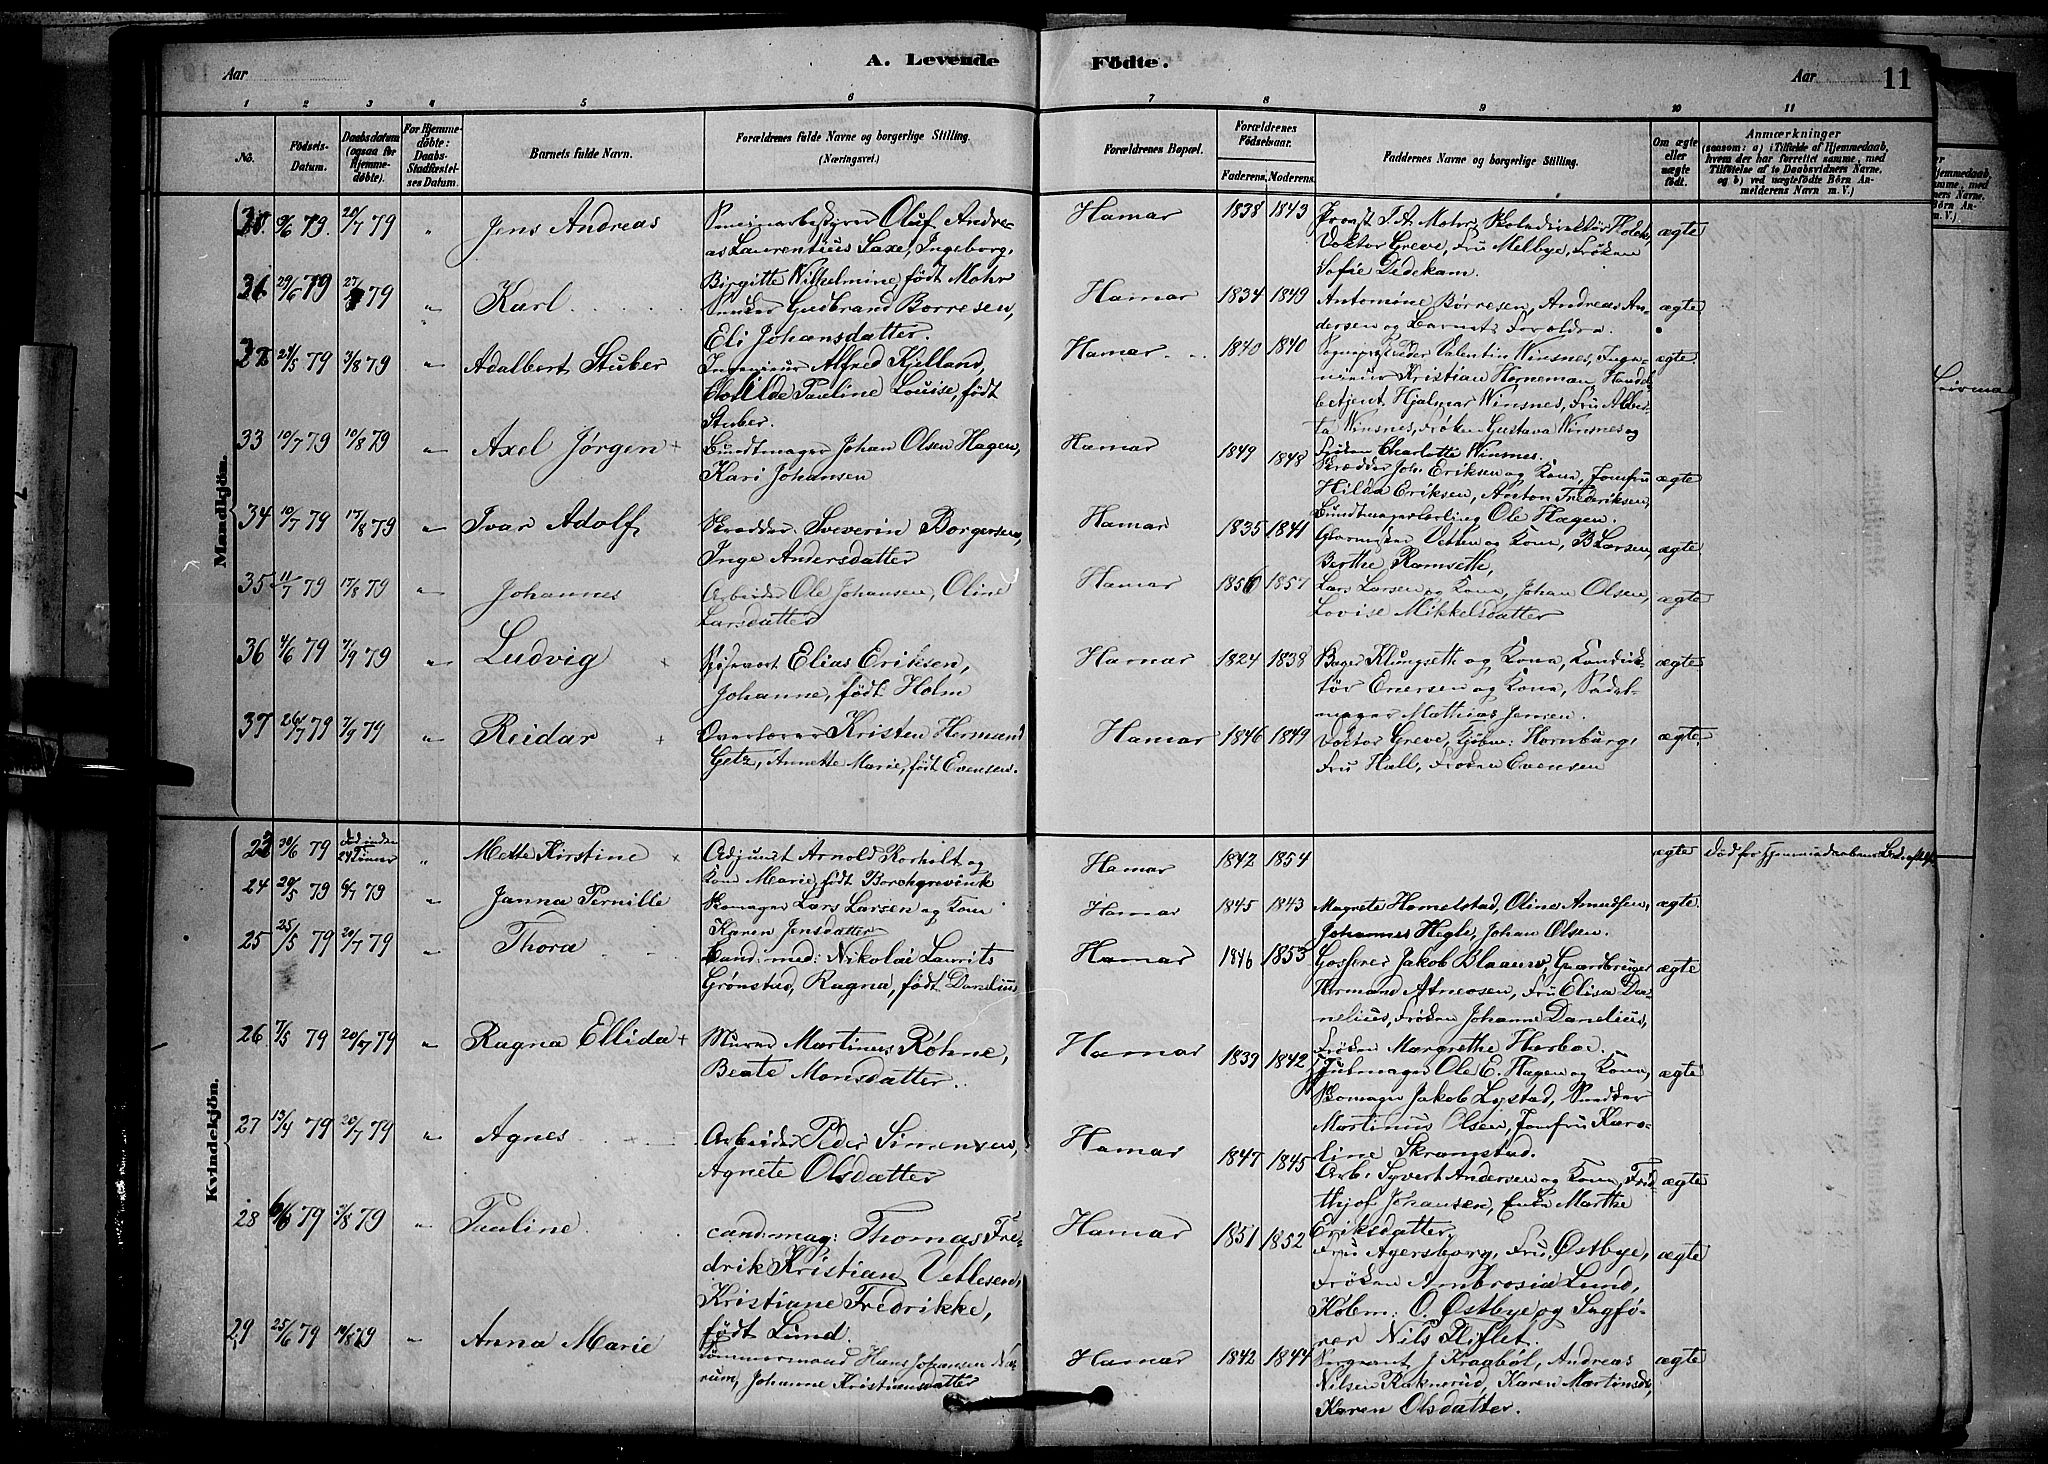 Aar
A. Levende
Fødte.
Aar
11
1 2 3 4 5 6 7 8 9 10 11
No.
Fødsels-Datum.
Daabsdatum (ogsaa for Hjemmedøbte).
For Hjemmedøbte: Daabs-Stadfæstelses Datum.
Barnets fulde Navn.
Forældrenes fulde Navne og borgerlige Stilling.
(Næringsvei.)
Forældrenes Bopæl.
Forældrenes Fødselsaar.
Faderens. Moderens.
Faddernes Navne og borgerlige Stilling.
Om ægte eller uægte født.
Anmærkninger
(saasom: a) i Tilfælde af Hjemmedaab,
hvem der har forrettet samme, med
Tilføielse af to Daabsvidners Navne,
og b) ved uægtefødte Børn An-
melderens Navn m. V.)
Mandkjøn.
79. 20/7 79 " Jens Andreas
Oluf Andre-
as Laurentius Saxe, Ingeborg,
Birgitte Wilhelmine, født Mohr
Hamar 1838 1843
Provst J. A. Mohr, Skoledirektør
Doktor Greve, Fru Melbye, Frøken
Sofie Dedekam.
ægte
31 29/6 79 27/7 79 " Karl
Snedker Gudbrand Borresen,
Eli Johansdatter.
Hamar 1834 1849
Antomine Børresen, Andreas An-
dersen og Barnets Forældre.
ægte
32 24/5 79 3/8 79 " Adalbert Stuber
Ingeniør Alfred Kjelland,
Clotilde Pauline Louise, født
Stuber.
Hamar 1840 1840
Valentin Winsnes, Inge-
niør Kristian Horneman, Handels-
betjent Hjalmar Winsnes, Fru Alber-
ta Winsnes, Frøken Gustava Winsnes og
Frøken Charlotte Winsnes.
ægte
33 10/7 79 10/8 79 " Axel Jørgen +
Bundtmager Johan Olsen Hagen,
Kari Johansen
Hamar 1849 1848
Skrædder Joh. Eriksen og Kone, Jomfru
Hilda Eriksen, Anton Frederiksen,
Bundtmagerlærling Ole Hagen.
ægte
34 10/7 79 17/8 79 " Ivar Adolf
Skrædder Severin Borgersen,
Inge Andersdatter
Hamar 1835 1841
Vetten og Kone, B. Larsen,
Berthe Ramseth,
ægte
35 11/7 79 17/8 79 " Johannes
Arbeider Ole Johansen, Oline
Larsdatter
Hamar 1856 1857
Lars Larsen og Kone, Johan Olsen,
Lovise Mikkelsdatter
ægte
36 4/6 79 7/9 79 " Ludvig +
Elias Eriksen,
Johanne, født Holm
Hamar 1824 1838
Bager Klungseth og Kone, Konduk-
tør Enersen og Kone, Sadel-
mager Mathias Jensen.
ægte
37 26/7 79 7/9 79 " Reidar +
Overlærer Kristen Hermand
Getz, Annette Marie, født Evensen.
Hamar 1846 1849
Doktor Greve, Kjøbm: Hornburg,
Fru Hall, Frøken Evensen
ægte
Kvindekjøn.
23 30/6 79 død inden 24 Timer " Mette Kirstine +
Adjunct Arnold Rorholt og
Kone Marie, født Borchgrevink
Hamar 1842 1854
ægte
Død før
24 29/5 79 6/7 79 " Janna Pernille
Skomager Lars Larsen og Kone
Karen Jensdatter
Hamar 1845 1843
Magrete Hamelstad, Oline Amundsen,
Johannes Hegle, Johan Olsen.
ægte
25 25/5 79 20/7 79 " Thora
Cand: med: Nikolai Laurits
Grønstad, Ragna, født Danelius
Hamar 1846 1853
Jakob Blaauw, Gaardbruger
Herman Atneosen, Fru Elisa Da-
nelius, Frøken Johanne Danelius,
Frøken Margrethe Harboe.
ægte
26 7/5 79 20/7 79 " Ragna Ellida +
Murer Martinus Røhne,
Beate Monsdatter.
Hamar 1839 1842
Hjulmager Ole E. Hagen og Kone,
Skomager Jakob Lystad, Snedker
Martinus Olsen, Jomfru Karo-
line Skramstad.
ægte
27 13/4 79 20/7 79 " Agnes +
Arbeider Peder Simensen,
Agnete Olsdatter
Hamar 1847 1845
Arb: Syvert Andersen og Kone, Frid-
thjof Johansen, Enke Marthe
Eriksdatter
ægte
28 79 3/8 79 " Pauline
cand. mag: Thomas Fre-
drik Kristian Vetlesen,
Kristiane Fredrikke,
født Lund.
Hamar 1851 1852
Fru Agersborg, Fru Østbye,
Frøken Ambrosia Lund,
Kjøbm: O. Østbye og Sagfø-
rer Nils Fliflet.
ægte
29 25/6 79 10/8 79 " Anna Marie
Tømmermand Hans Johansen
rum, Johanne Kristiansdatter
Hamar 1842 1844
Sergeant J. Kragbøl, Andreas
Nilsen Raknerud, Karen Martinsd.,
Karen Olsdatter.
ægte